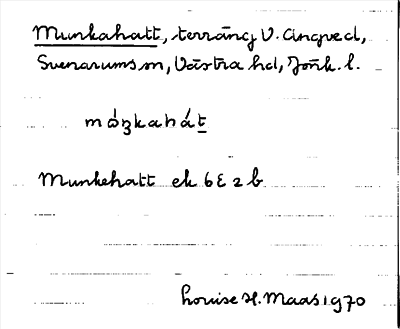 Munkahatt, terräng V. Angved,
Svenarums sn, Västra hd, Jönk. l.
mȯ́ŋkahȧ́t
Munkehatt ek 6E 2 b
Louise H. Maas 1970